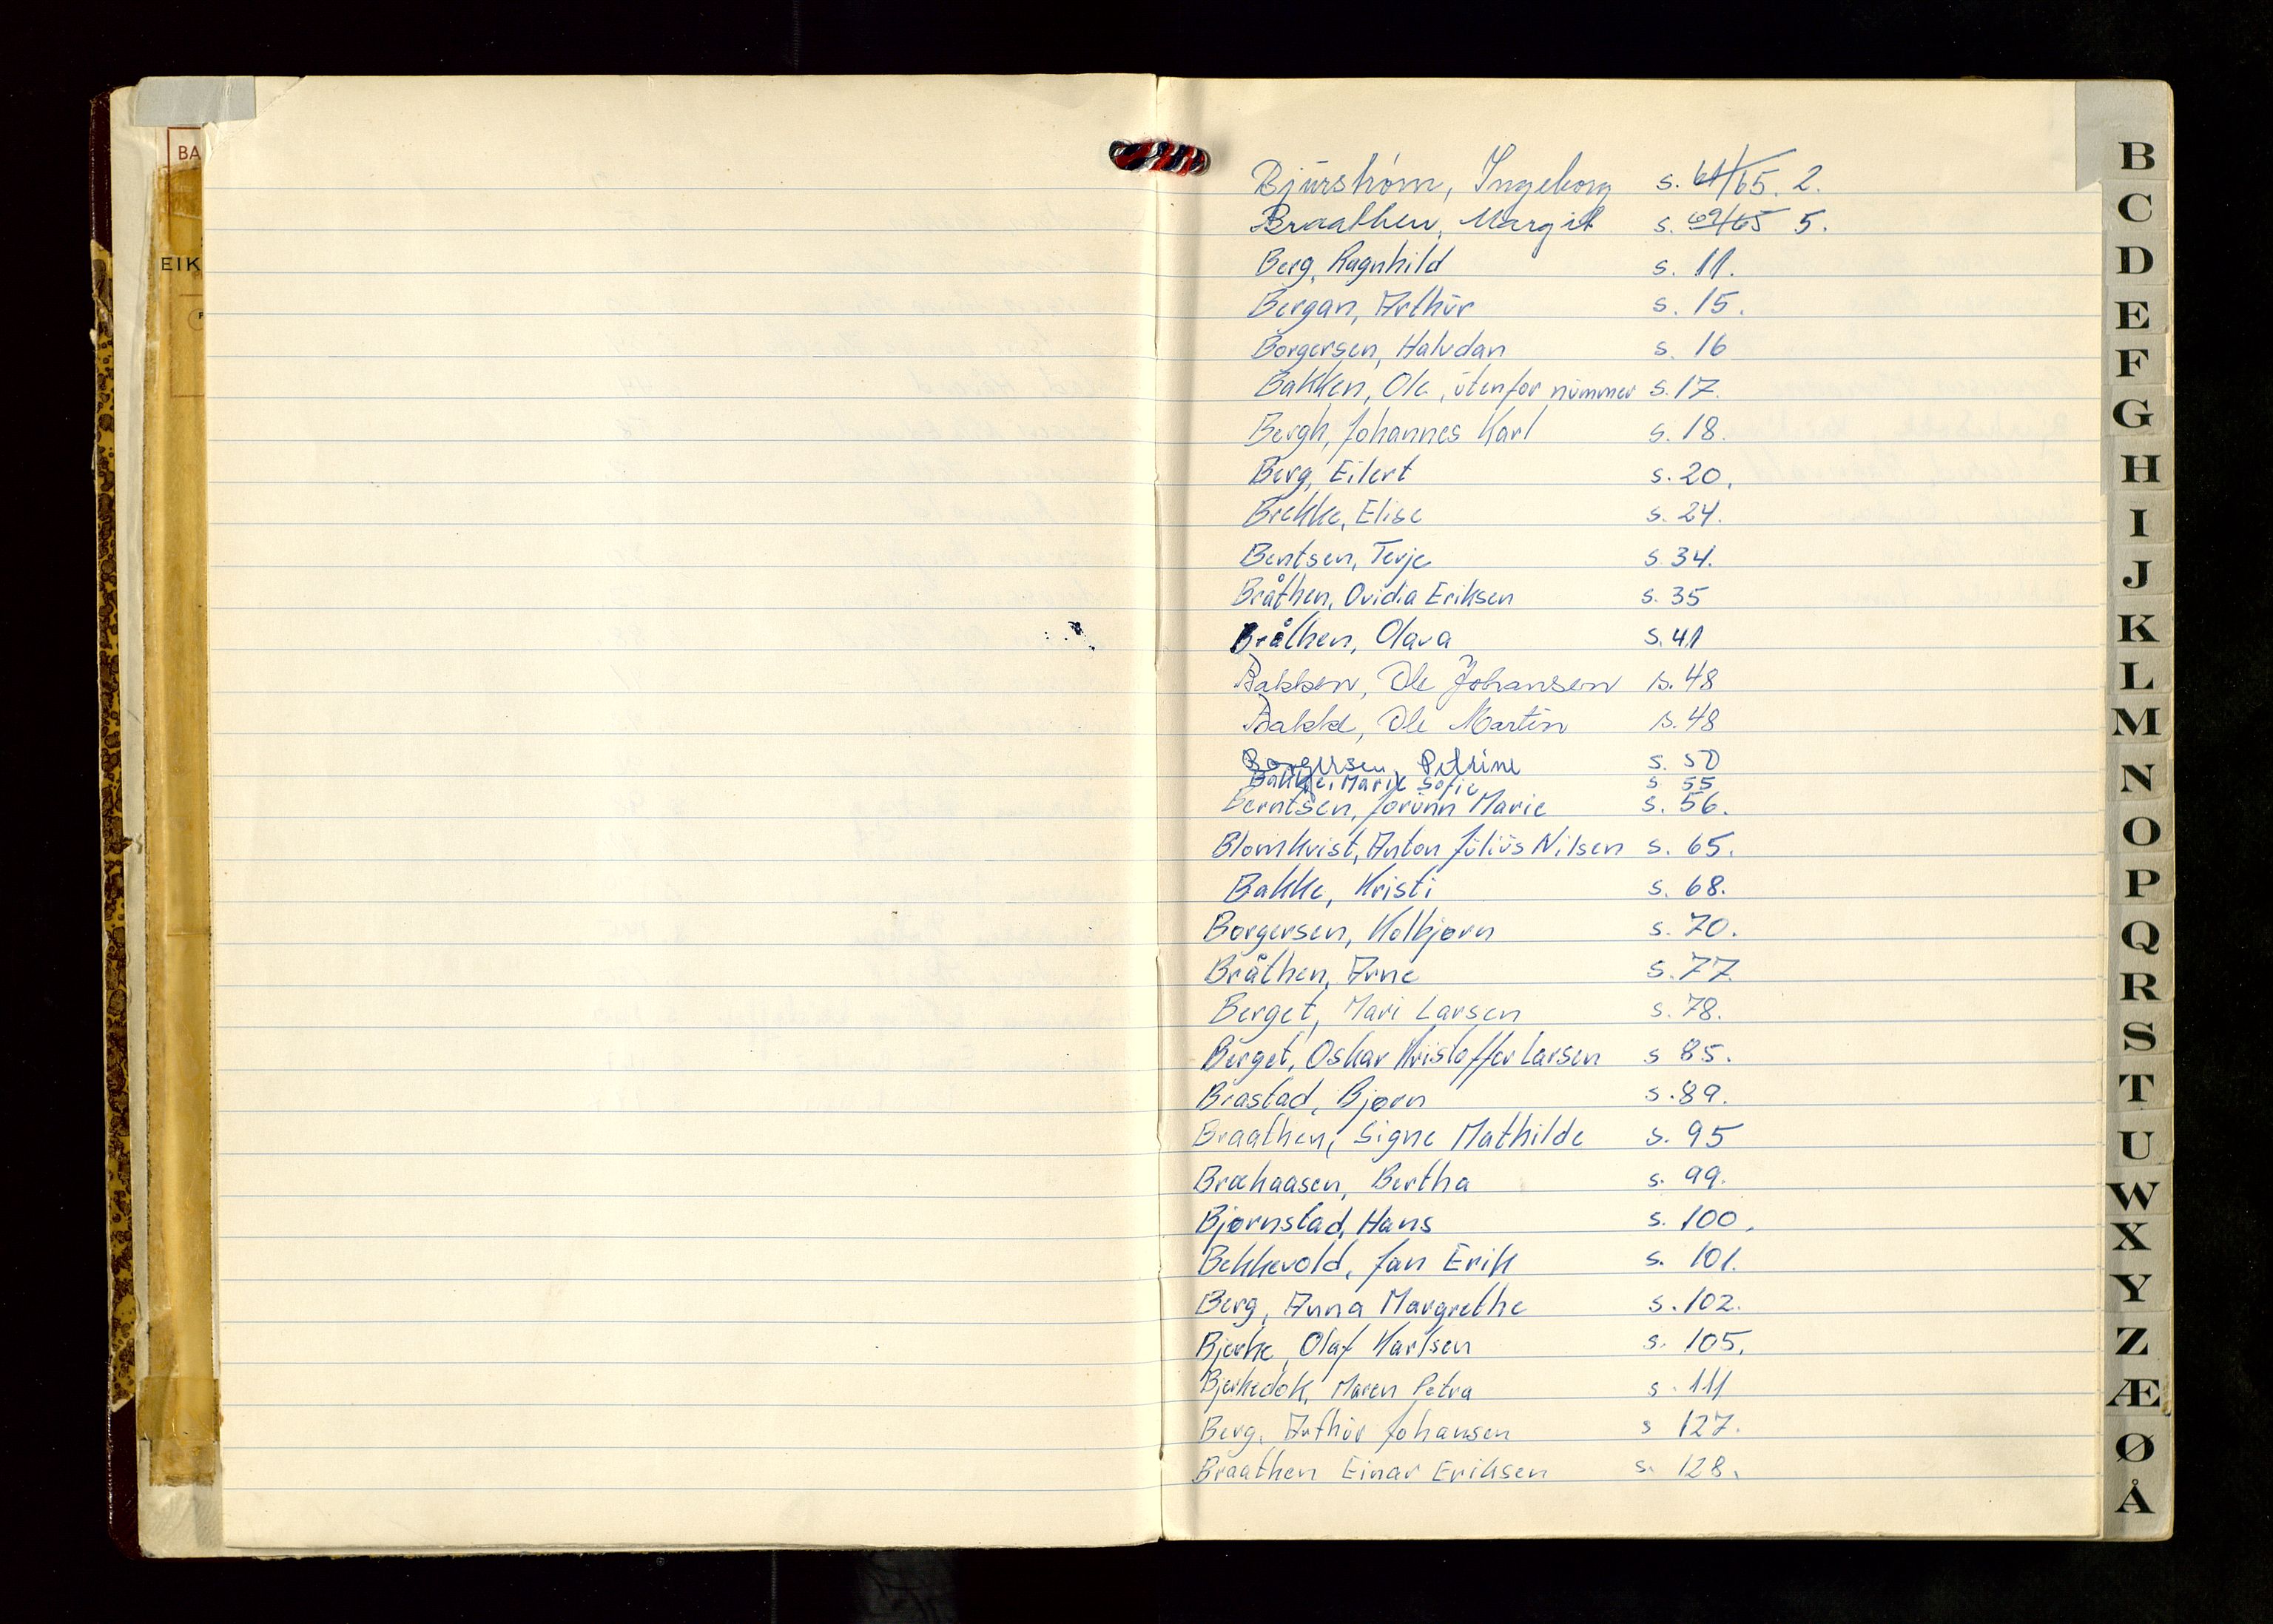 BA
EIK
Bjürstrøm, Ingeborg s. 61/65. 2.
Braathen, Margit s. 62/65 5.
Berg, Ragnhild s. 11.
Bergan, Arthur s. 15.
Borgersen, Halvdan s. 16
Bakken, Ole, utenfor nummer s. 17.
Bergh, Johannes Karl s. 18.
Berg, Eilert s. 20.
Brekke, Elise s. 24.
Bentsen, Terje s. 34.
Bråthen, Ovidia Eriksen s. 35
Bråthen, Olava s. 41
Bakken, Ole Johansen s. 48
Bakke, Ole Martin s. 48
Borgersen, Petrine s. 50
Bakke, Marie Sofie s 55
Berntsen, Jorunn Marie s. 56.
Blomkvist, Anton Julius Nilsen s. 65.
Bakke, Kristi s. 68.
Borgersen, Kolbjørn s. 70.
Bråthen, Arne s. 77.
Berget, Mari Larsen s. 78.
Berget, Oskar Kristoffer Larsen s 85.
Brastad, Bjørn s. 89.
Braathen, Signe Mathilde s. 95
Bræhaasen, Bertha s. 99.
Bjørnstad, Hans s. 100.
Bekkevold, Jan Erik s. 101.
Berg, Anna Margrethe s. 102.
Bjerke, Olaf Karlsen s. 105.
Bjerkedok, Maren Petra s. 111
Berg, Arthur Johansen s 127.
Braathen Einar Eriksen s. 128.
B
C
D
E
F
G
H
I
J
K
L
M
N
O
P
Q
R
S
T
U
W
X
Y
Z
Æ
Ø
Å